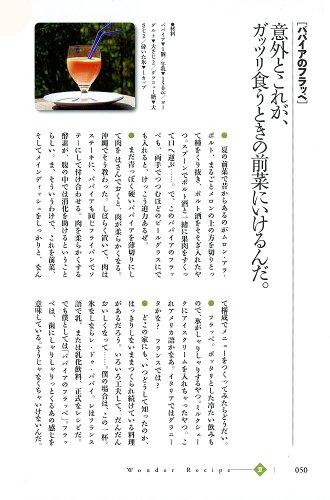 [パパイアのフラッペ]
意外とこれが、
ガッツリ食うときの前菜にいけるんだ。
●材料
● 夏の前菜で昔からあるのがムロン・フラ・
ポルト。まるごとメロンの上の方を切りとっ
て種をくり抜き、ポルト酒をそそぎ入れたや
つ。スプーンでポルト酒と一緒に果肉をすくっ
て口へ運ぶ……で、このパパイアのフラッ
ペも、両手でつつむほどのビールグラスにで
も入れると、けっこう迫力あるぜ。
● まだ青っぽく硬いパパイアを薄切りにし
て肉をはさんでおくと、肉が柔らかくなる。
沖縄でそう教わった。しばらく置いて、肉は
ステーキに、パパイアも同じフライパンでソ
テーにして付け合わせる。肉を柔らかくする
酵素が、腹の中では消化を助けるということ
らしい。ま、そういうわけで、これを前菜、
そしてメインディッシュをしっかりと、なん
て構成でメニューをつくってみたらどうだい。
● フラッペ、ポッタリとした冷たい飲みも
ので、氷がしゃりしゃりするやつ。ミルクシェー
クにアイスクリームを入れちゃったやつ。こ
れアメリカ語かなあ。イタリアではグラニー
タかな？ フランスでは？
● どこの家にも、いつどうして知ったのか、
はっきりしないままつくられ続けている料理
があるだろう。いろいろ工夫して、だんだん
おいしくなって……僕の場合は、この一杯。
氷なしならレ・ド・パパイ。レはフランス
語で乳、または乳化飲料、正式なレシピだ。
でも僕としては「パパイアのフラッペ」。フラッ
ペは、歯にしゃりしゃりっとくるあの感じを
意味している。そうじゃなくちゃいけないんだ。
Wonder Recipe
夏
050